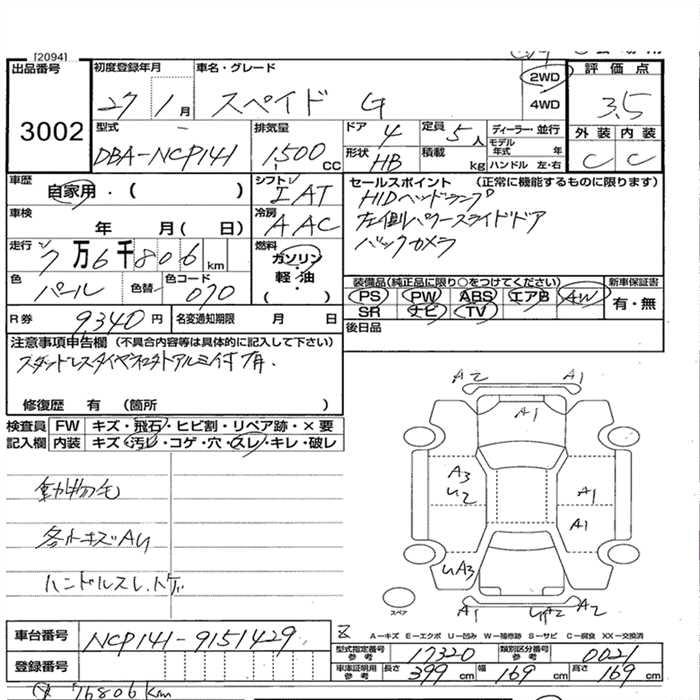 [2094]
出品番号 初度登録年月 車名・グレード 2WD 評価点
3002 27 1月 スペイド G 4WD 3.5
型式 排気量 ドア 定員 ディーラー・並行 外装 内装
DBA-NCP141 1,500CC 4 5人 モデル年式 年 C C
形状 HB 積載 kg ハンドル 左・右
車歴 自家用・( ) シフト IAT セールスポイント (正常に機能するものに限ります)
HIDヘッドランプ
車検 年 月( 日) 冷房 AAC 左側パワースライドドア
走行 7万6千806km 燃料 ガソリン・軽油 ( ) バックカメラ
色 パール 色替 色コード 070 装備品(純正品に限り○をつけてください) 新車保証書
PS PW ABS エアB AW 有・無
SR ナビ TV
R券 9,340円 名変通知期限 月 日 後日品
注意事項申告欄 (不具合内容等は具体的に記入して下さい)
スタッドレスタイヤ アルミ付有.
修復歴 有 (箇所 )
検査員 FW キズ・飛石・ヒビ割・リペア跡・×要
記入欄 内装 キズ・汚レ・コゲ・穴・スレ・キレ・破レ
A2 A1
A1
A3
U2
A1
A1
UA3
A1 A2
動物毛
各小キズAU
ハンドルスレ.
スペア
A-キズ E-エクボ U-凹み W-補修跡 S-サビ C-腐食 XX-交換済
車台番号 NCP141-9151429
型式指定番号参考 17320 類別区分番号参考 0021
登録番号
車庫証明用参考 長さ 399cm 幅 169cm 高さ 169cm
76806km